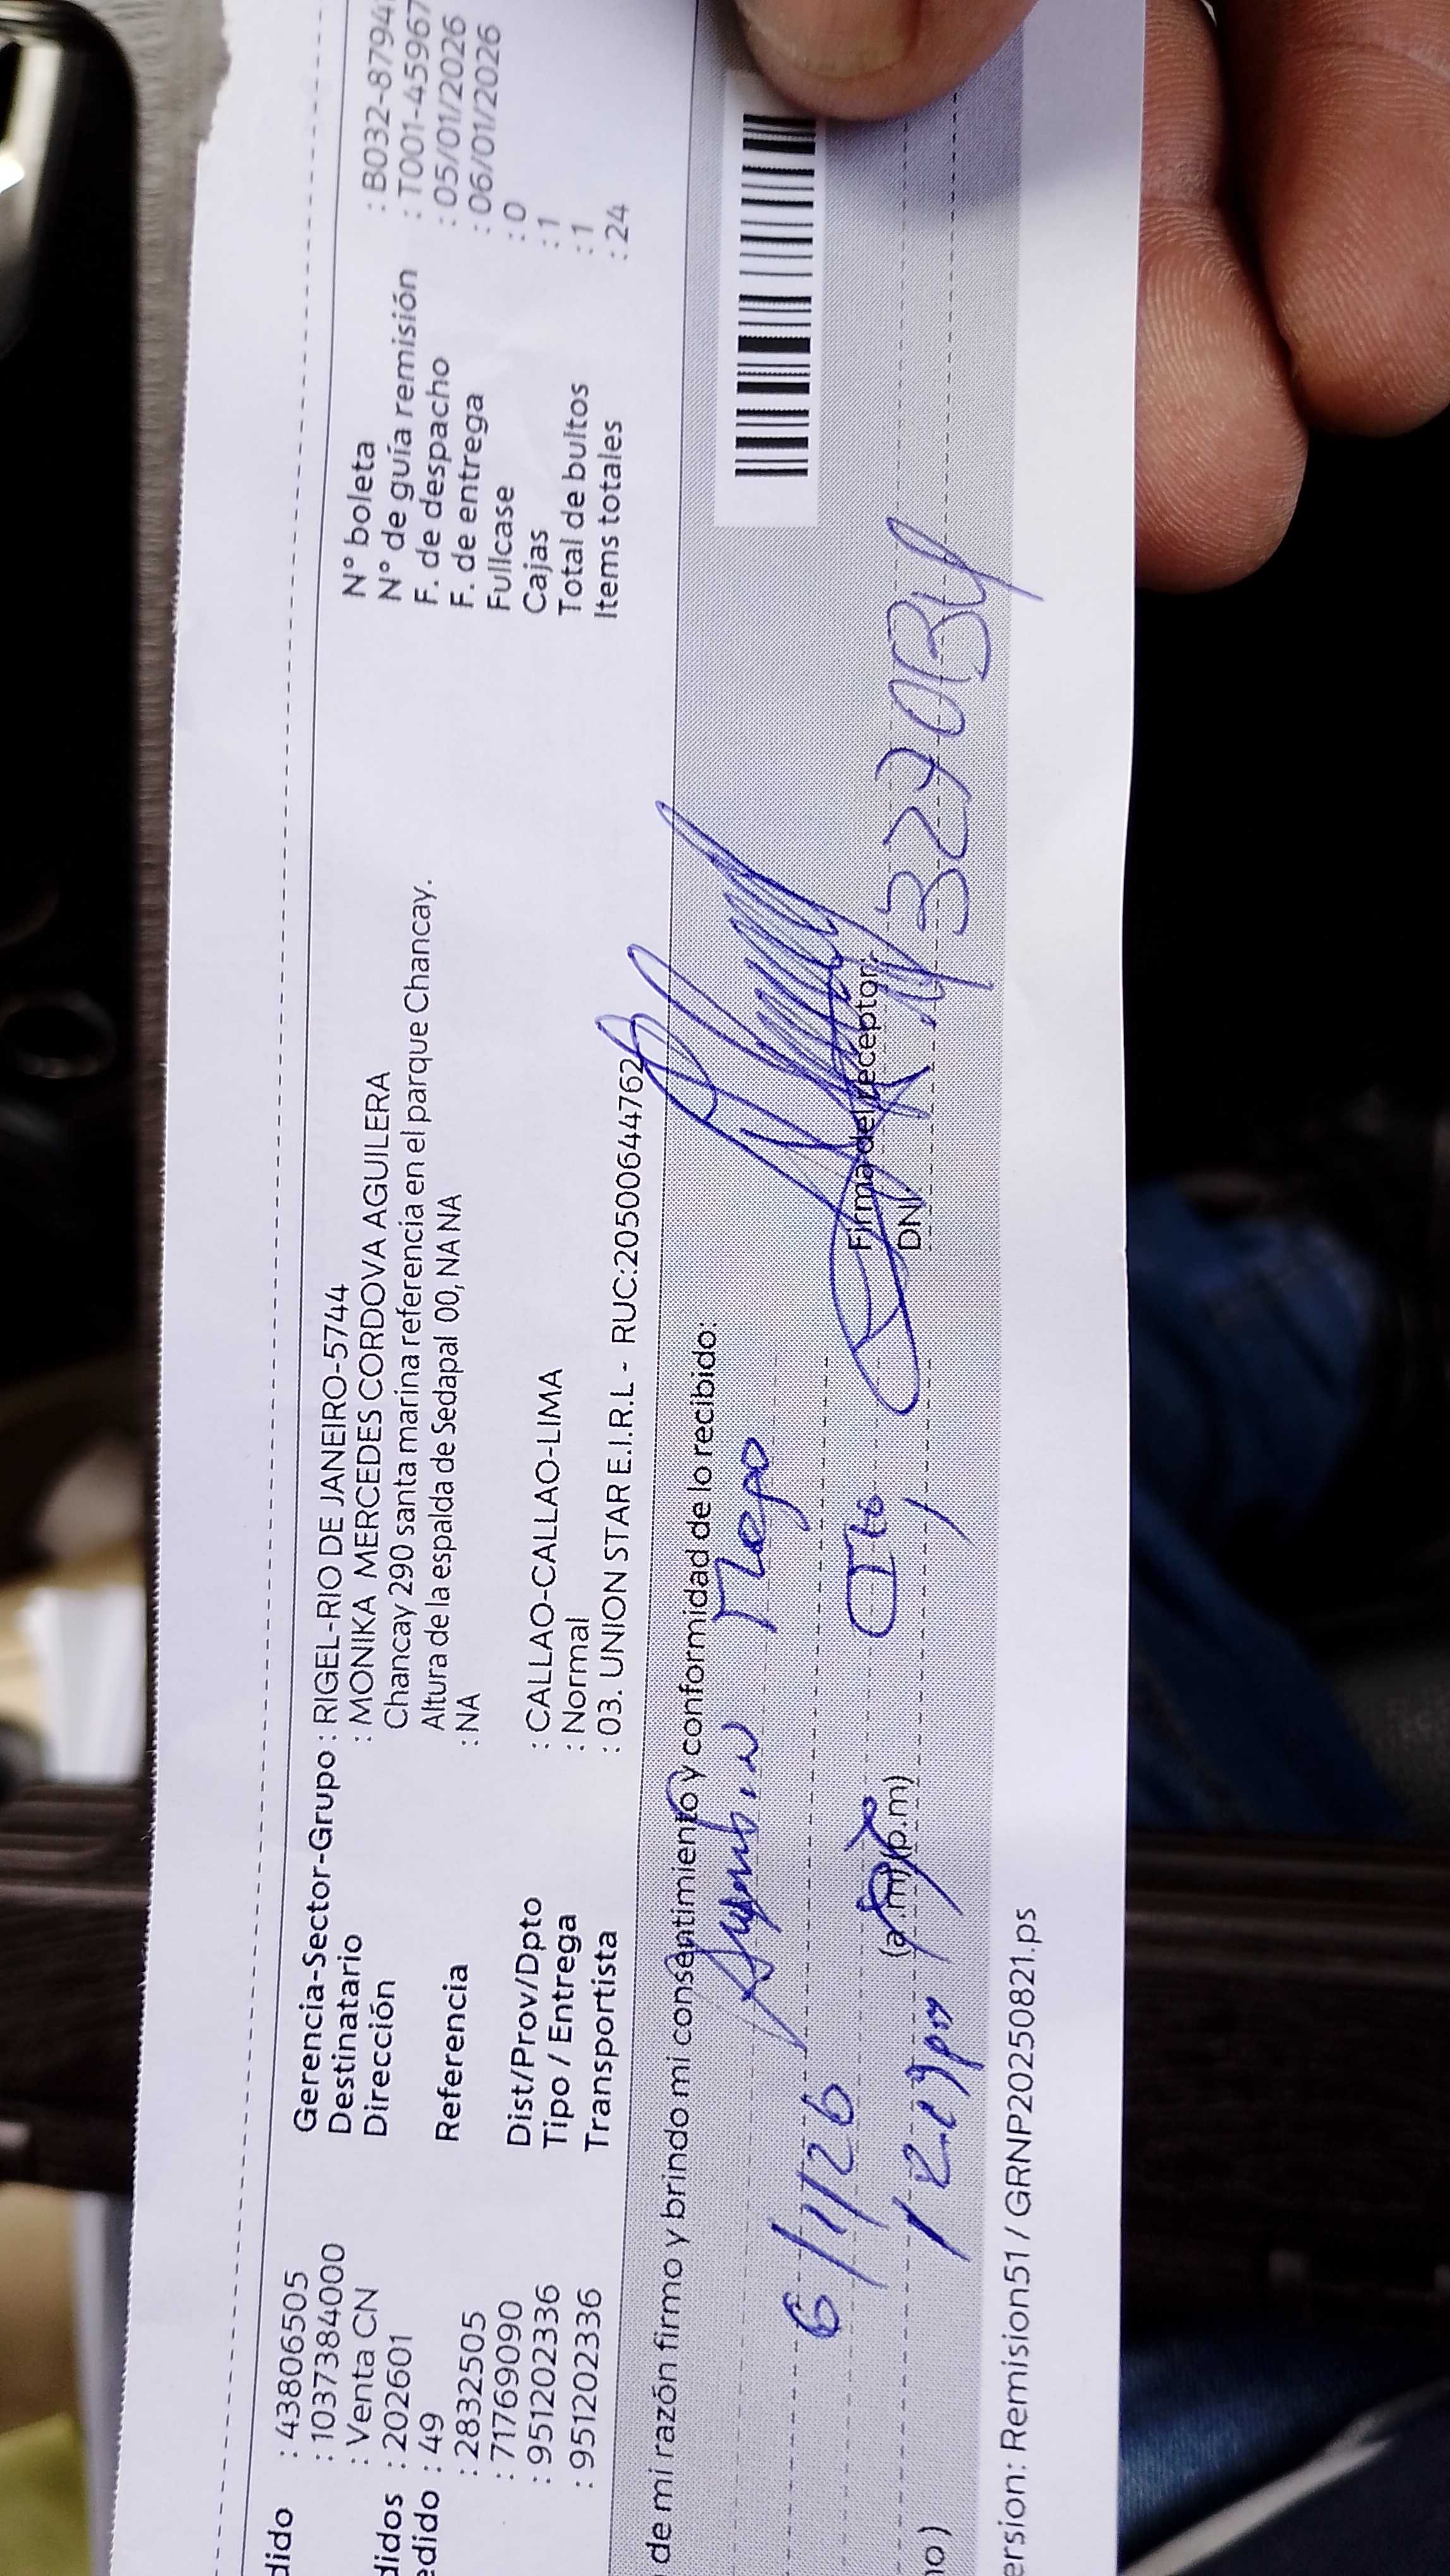 dido : 43806505
: 1037384000
: Venta CN
didos : 202601
edido : 49
: 2832505
: 71769090
: 951202336
: 951202336
Gerencia-Sector-Grupo : RIGEL-RIO DE JANEIRO-5744
Destinatario : MONIKA MERCEDES CORDOVA AGUILERA
Dirección Chancay 290 santa marina referencia en el parque Chancay.
Altura de la espalda de Sedapal 00, NA NA
Referencia : NA
Dist/Prov/Dpto : CALLAO-CALLAO-LIMA
Tipo / Entrega : Normal
Transportista : 03. UNION STAR E.I.R.L - RUC:20500644762
N° boleta : B032-8794
N° de guía remisión : T001-45967
F. de despacho : 05/01/2026
F. de entrega : 06/01/2026
Fullcase : 0
Cajas : 1
Total de bultos : 1
Items totales : 24
de mi razón firmo y brindo mi consentimiento y conformidad de lo recibido:
6/1/26
(a.m)(p.m)
Firma del receptor:
DNI
no)
ersion: Remision51 / GRNP20250821.ps